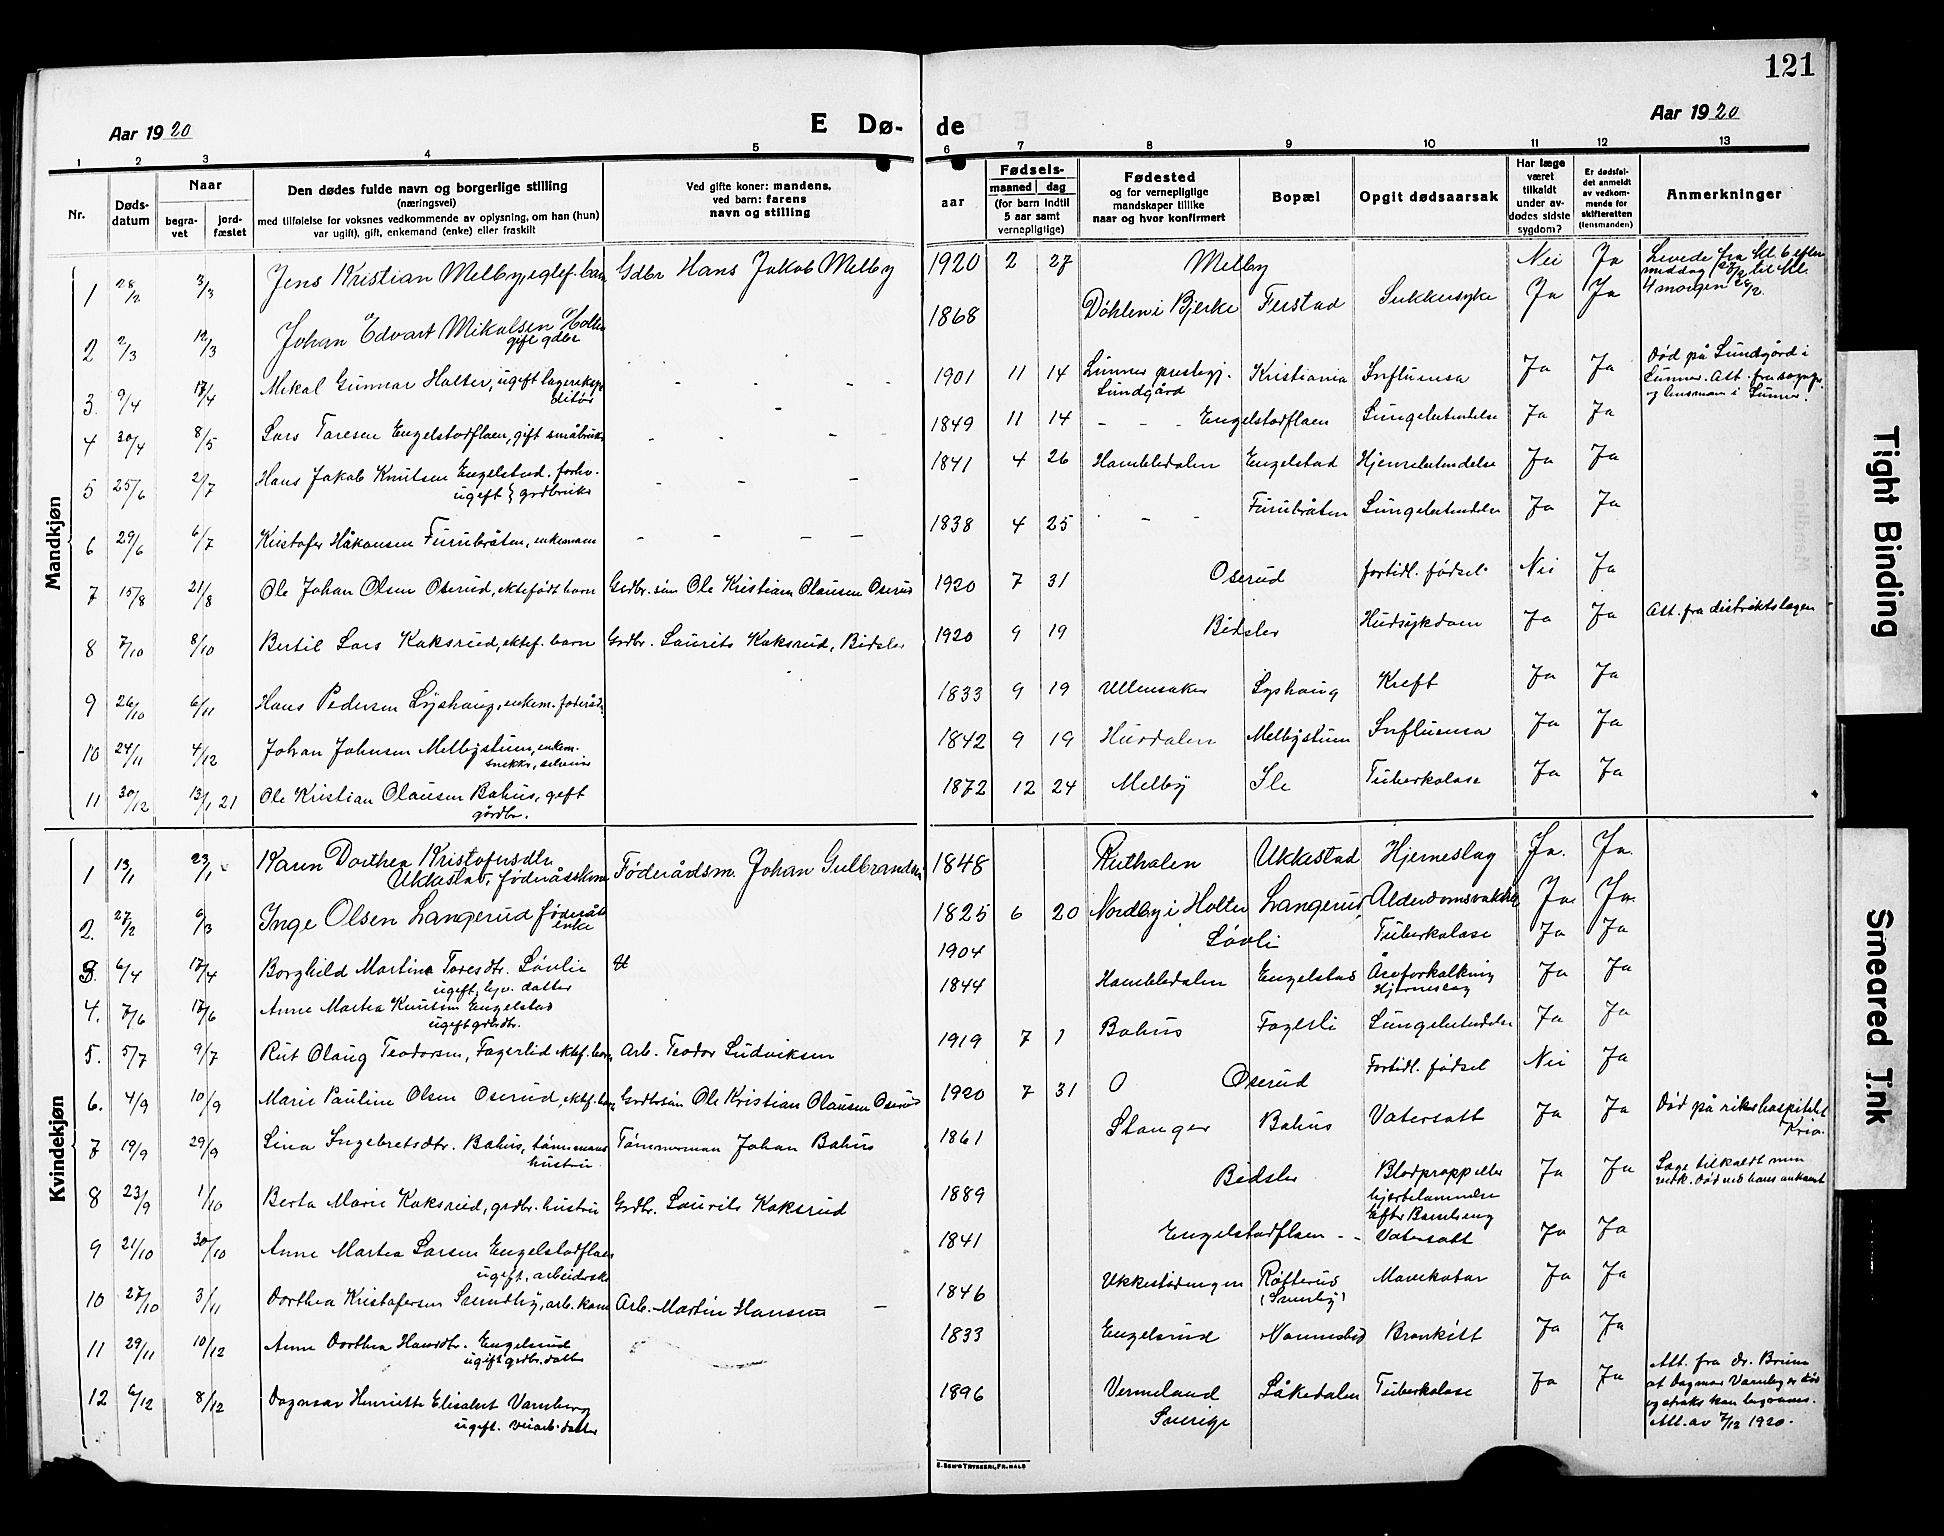 121
Aar 1920 E Dø- de Aar 1920
1 2 3 4 5 6 7 8 9 10 11 12 13
Nr.
Døds-
datum
Naar
begra-
vet
jord-
fæstet
Den dødes fulde navn og borgerlige stilling
(næringsvei)
med tilføielse for voksnes vedkommende av oplysning, om han (hun)
var ugift), gift, enkemand (enke) eller fraskilt
Ved gifte koner: mandens,
ved barn: farens
navn og stilling
Fødsels-
aar
maaned dag
(for barn indtil
5 aar samt
vernepligtige)
Fødested
og for vernepligtige
mandskaper tillike
naar og hvor konfirmert
Bopæl
Opgit dødsaarsak
Har læge
været
tilkaldt
under av-
dødes sidste
sygdom?
Er dødsfal-
det anmeldt
av vedkom-
mende for
skifteretten
(lensmanden)
Anmerkninger
Mandkjøn
1 28/2 3/3 Jens Kristian Melby, egtef. barn Gdbr Hans Jakob Melby 1920 2 27 Melby Nei Ja Levede fra kl. 6 efter
middag 27/2 til kl.
4 morgen 28/2.
2 2/3 12/3 Johan Edvart Mikalsen Holter
gift gdbr
1868 Døhlen i Bjerke Ferstad Sukkersyke Ja Ja
3. 9/4 17/4 Mikal Gunnar Holter, ugift lagerekspe
ditør
- - - - 1901 11 14 Lunner prestegj.
Lundgård
Kristiania Influensa Ja Ja Død på Lundgård i
Lunner. Att. fra sogепr.
og lensmann i Lunner.
4 30/4 8/5 Lars Taresen Engelstadflaen, gift småbruker - - - - 1849 11 14 - - - Engelstadflaen Lungebetendelse Ja Ja
5 25/6 2/7 Hans Jakob Knutsen Engelstad, forhv.
ugift grdbruker
- - - 1841 4 26 Hambledalen Engelstad Hjernebetendelse Ja Ja
6 29/6 6/7 Kristofer Håkonsen Furubråten, enkemann - - - - 1838 4 25 - - - Furubråten Lungebetendelse Ja Ja
7 15/8 21/8 Ole Johan Olsen Oserud, ektefødt barn Grdbr. søn Ole Kristian Olausen Oserud 1920 7 31 Oserud fortidl. fødsel Nei Ja
8 7/10 8/10 Bertil Lars Koksrud, ektef. barn Grdbr. Laurits Koksrud, Bidsler 1920 9 19 Bidsler Hudsykdom Ja Ja Att. fra distriktslægen
9 26/10 6/11 Hans Pedersen Lyshaug, enkem. føderåds. 1833 9 19 Ullensaker Lyshaug Kreft Ja Ja
10 24/11 4/12 Johan Johnsen Melbystuen, enkem.
snekker, selveier
1842 9 19 Hurdalen Melbystuen Influensa Ja Ja
11 30/12 13/1 21 Ole Kristian Olausen Bahus, gift
gårdbr.
1872 12 24 Melby Ile Tuberkolose Ja Ja
Kvindekjøn
1 13/1 23/1 Karen Dorthea Kristofersdtr.
Ukkestad, føderådskone
Føderådsm. Johan Gulbrandsen 1848 Ruthalen Ukkestad Hjerneslag Ja. Ja.
2. 27/2 6/3 Inge Olsen Langerud føderåds
enke
1825 6 20 Nordby i Holter Langerud, Alderdomsvakhet Ja. Ja.
3. 6/4 17/4 Borghild Martine Taresdtr. Løvlie
ugift, hjv. datter
1904 Løvli Tuberkolose Ja Ja
4. 7/6 17/6 Anne Martea Knutsen Engelstad
ugift grdbr.
1844 Hambledalen Engelstad Åreforkalkning
Hjerneslag
Ja Ja
5. 5/7 9/7 Rut Olaug Teodorsen, Fagerlid ektef. barn Arb. Teodor Ludviksen 1919 7 1 Bahus Fagerli Lungebetendelse Ja Ja
6. 4/9 10/9 Marie Pauline Olsen Oserud, ektef. barn Grdbrsøn Ole Kristian Olausen Oserud 1920 7 31 O Oserud Fortidl. fødsel Nei Ja
7 19/9 29/9 Lina Ingebretsdtr. Bahus, tømmmans
hustru
Tømmerman Johan Bahus 1861 Stanger Bahus Vatersott Ja Ja Død på rikshospitalet
Kria.
8 23/9 1/10 Berta Marie Koksrud, grdbr. hustru Grdbr. Laurits Koksrud 1889 Bidsler Blodpropp eller
hjertelammelse
Efter Barnseng
Ja Ja Læge tilkaldt men
vedk. død ved hans ankomst
9 21/10 30/10 Anne Martea Larsen Engelstadflaen
ugift, arbeiderske
1841 Engelstadflaen - - Vatersott Ja Ja
10 27/10 3/11 Dorthea Kristofersen Sundby, arb. kone Arb. Martin Hansen - 1846 Ukkestadengen Røfterud
(Sundby)
Mavekatar Ja Ja
11 29/11 10/12 Anne Dorthea Hansdtr. Engelsrud
ugift grdbr. datter
1833 Engelsrud Nannestad Bronkitt Ja Ja
12 6/12 8/12 Dagmar Henriette Elisabet Varnberg
ugift. veiarb. datter
1896 Vermeland
Sverige
Låkedalen Tuberkolose Ja Ja Att. fra dr. Bruun
at Dagmar Varnberg er død
og straks kan begraves.
Att. av 7/12 1920.
E. SEM'S TRYKKERI, FR.HALD
Tight Binding
Smeared Ink